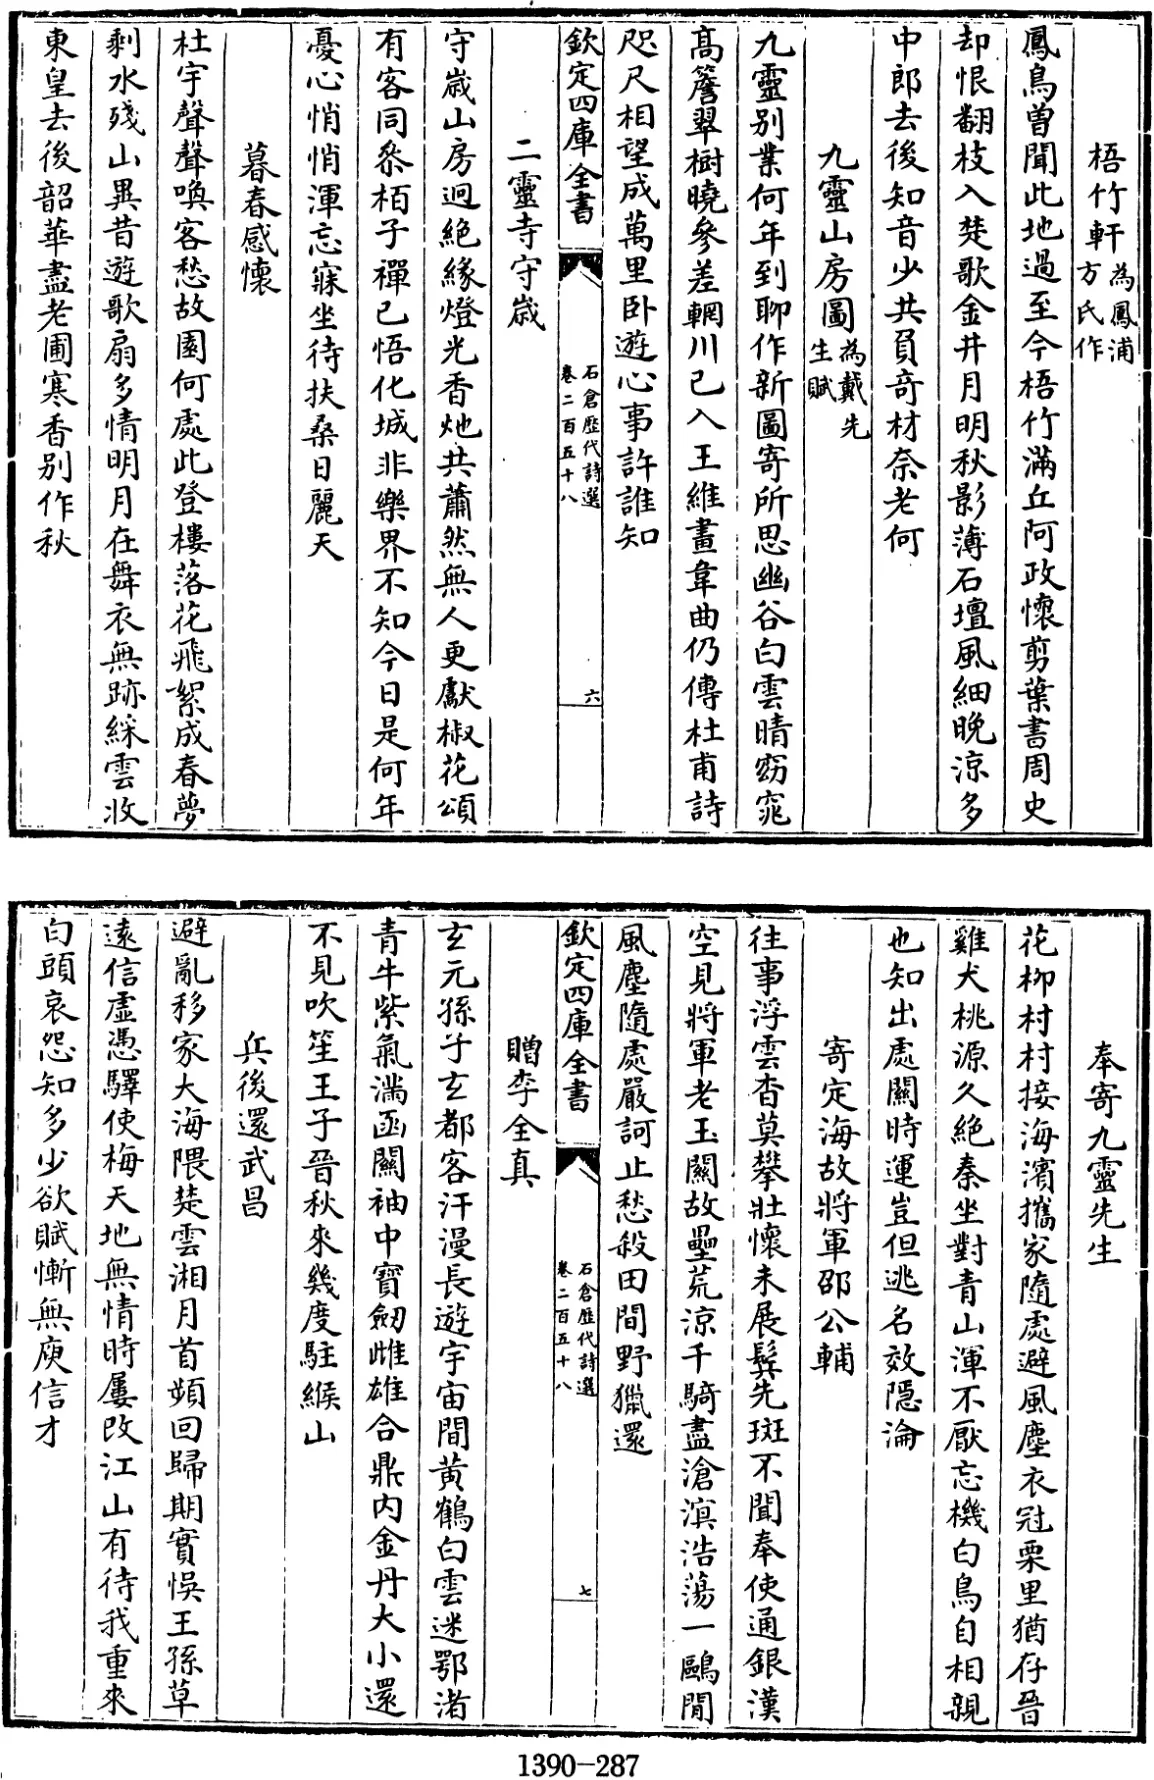 梧竹軒為鳳浦方氏作
鳳鳥曾聞此地過至今梧竹滿丘阿政懷剪葉書周史
却恨翻枝入楚歌金井月明秋影薄石壇風細晚涼多
中郎去後知音少共負奇材奈老何
九靈山房圖為戴先生賦
九靈别業何年到聊作新圖寄所思幽谷白雲晴窈窕
髙簷翠樹曉參差輞川已入王維畫韋曲仍傳杜甫詩
咫尺相望成萬里卧遊心事許誰知
欽定四庫全書
石倉歷代詩選
卷二百五十八
六
二靈寺守歳
守歳山房迥絶緣燈光香灺共蕭然無人更獻椒花頌
有客同叅栢子禪已悟化城非樂界不知今日是何年
憂心悄悄渾忘寐坐待扶桑日麗天
暮春感懷
杜宇聲聲喚客愁故園何處此登樓落花飛絮成春夢
剩水殘山異昔遊歌扇多情明月在舞衣無跡綵雲收
東皇去後韶華盡老圃寒香别作秋
奉寄九靈先生
花柳村村接海濱攜家隨處避風塵衣冠栗里猶存晉
雞犬桃源久絶秦坐對青山渾不厭忘機白鳥自相親
也知出處關時運豈但逃名效隱淪
寄定海故將軍邵公輔
往事浮雲杳莫攀壯懷未展鬂先斑不聞奉使通銀漢
空見將軍老玉關故壘荒涼千騎盡滄溟浩蕩一鷗閒
風塵隨處嚴訶止愁殺田間野獵還
欽定四庫全書
石倉歷代詩選
卷二百五十八
七
贈李全真
玄元孫子玄都客汗漫長遊宇宙間黄鶴白雲迷鄂渚
青牛紫氣滿函關袖中寶劒雌雄合鼎内金丹大小還
不見吹笙王子晉秋來幾度駐緱山
兵後還武昌
避亂移家大海隈楚雲湘月首頻回歸期實悞王孫草
遠信虚憑驛使梅天地無情時屢改江山有待我重來
白頭哀怨知多少欲賦慚無庾信才
1390-287